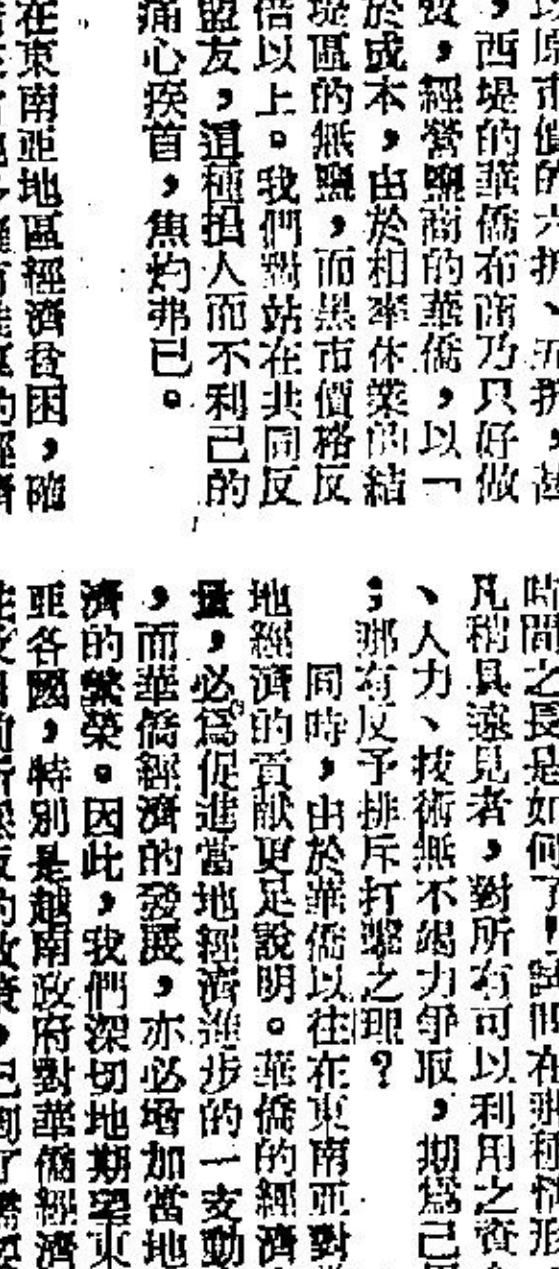 原市價的六折、五折，甚
，西堤的華僑布商乃只好做
，經營鹽商的華僑，以「
於成本，由於相率休業的結
堤區的無鹽，而黑市價格反
倍以上。我們對站在共同反
盟友，這種損人而不利己的
痛心疾首，焦灼弗已。
在東南亞地區經濟貧困，確
時間之長是如何了！試問在那種情形
凡稍具遠見者，對所有可以利用之資
、人力、技術無不竭力爭取，期為己
；那有反予排斥打擊之理？
同時，由於華僑以往在東南亞對
地經濟的貢獻更足說明。華僑的經濟
量，必為促進當地經濟進步的一支動
，而華僑經濟的發展，亦必增加當地
濟的繁榮。因此，我們深切地期望東
亞各國，特別是越南政府對華僑經濟